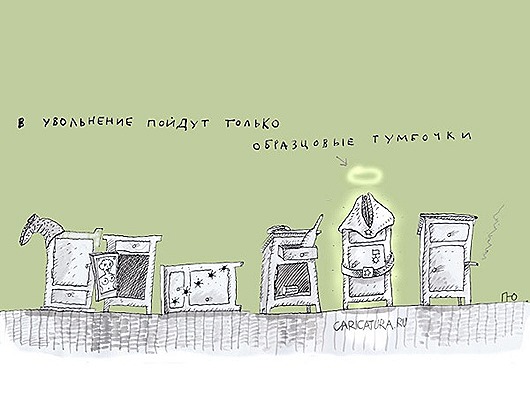 В УВОЛЬНЕНИЕ ПОЙДУТ ТОЛЬКО
ОБРАЗЦОВЫЕ ТУМБОЧКИ
CARICATURA.RU